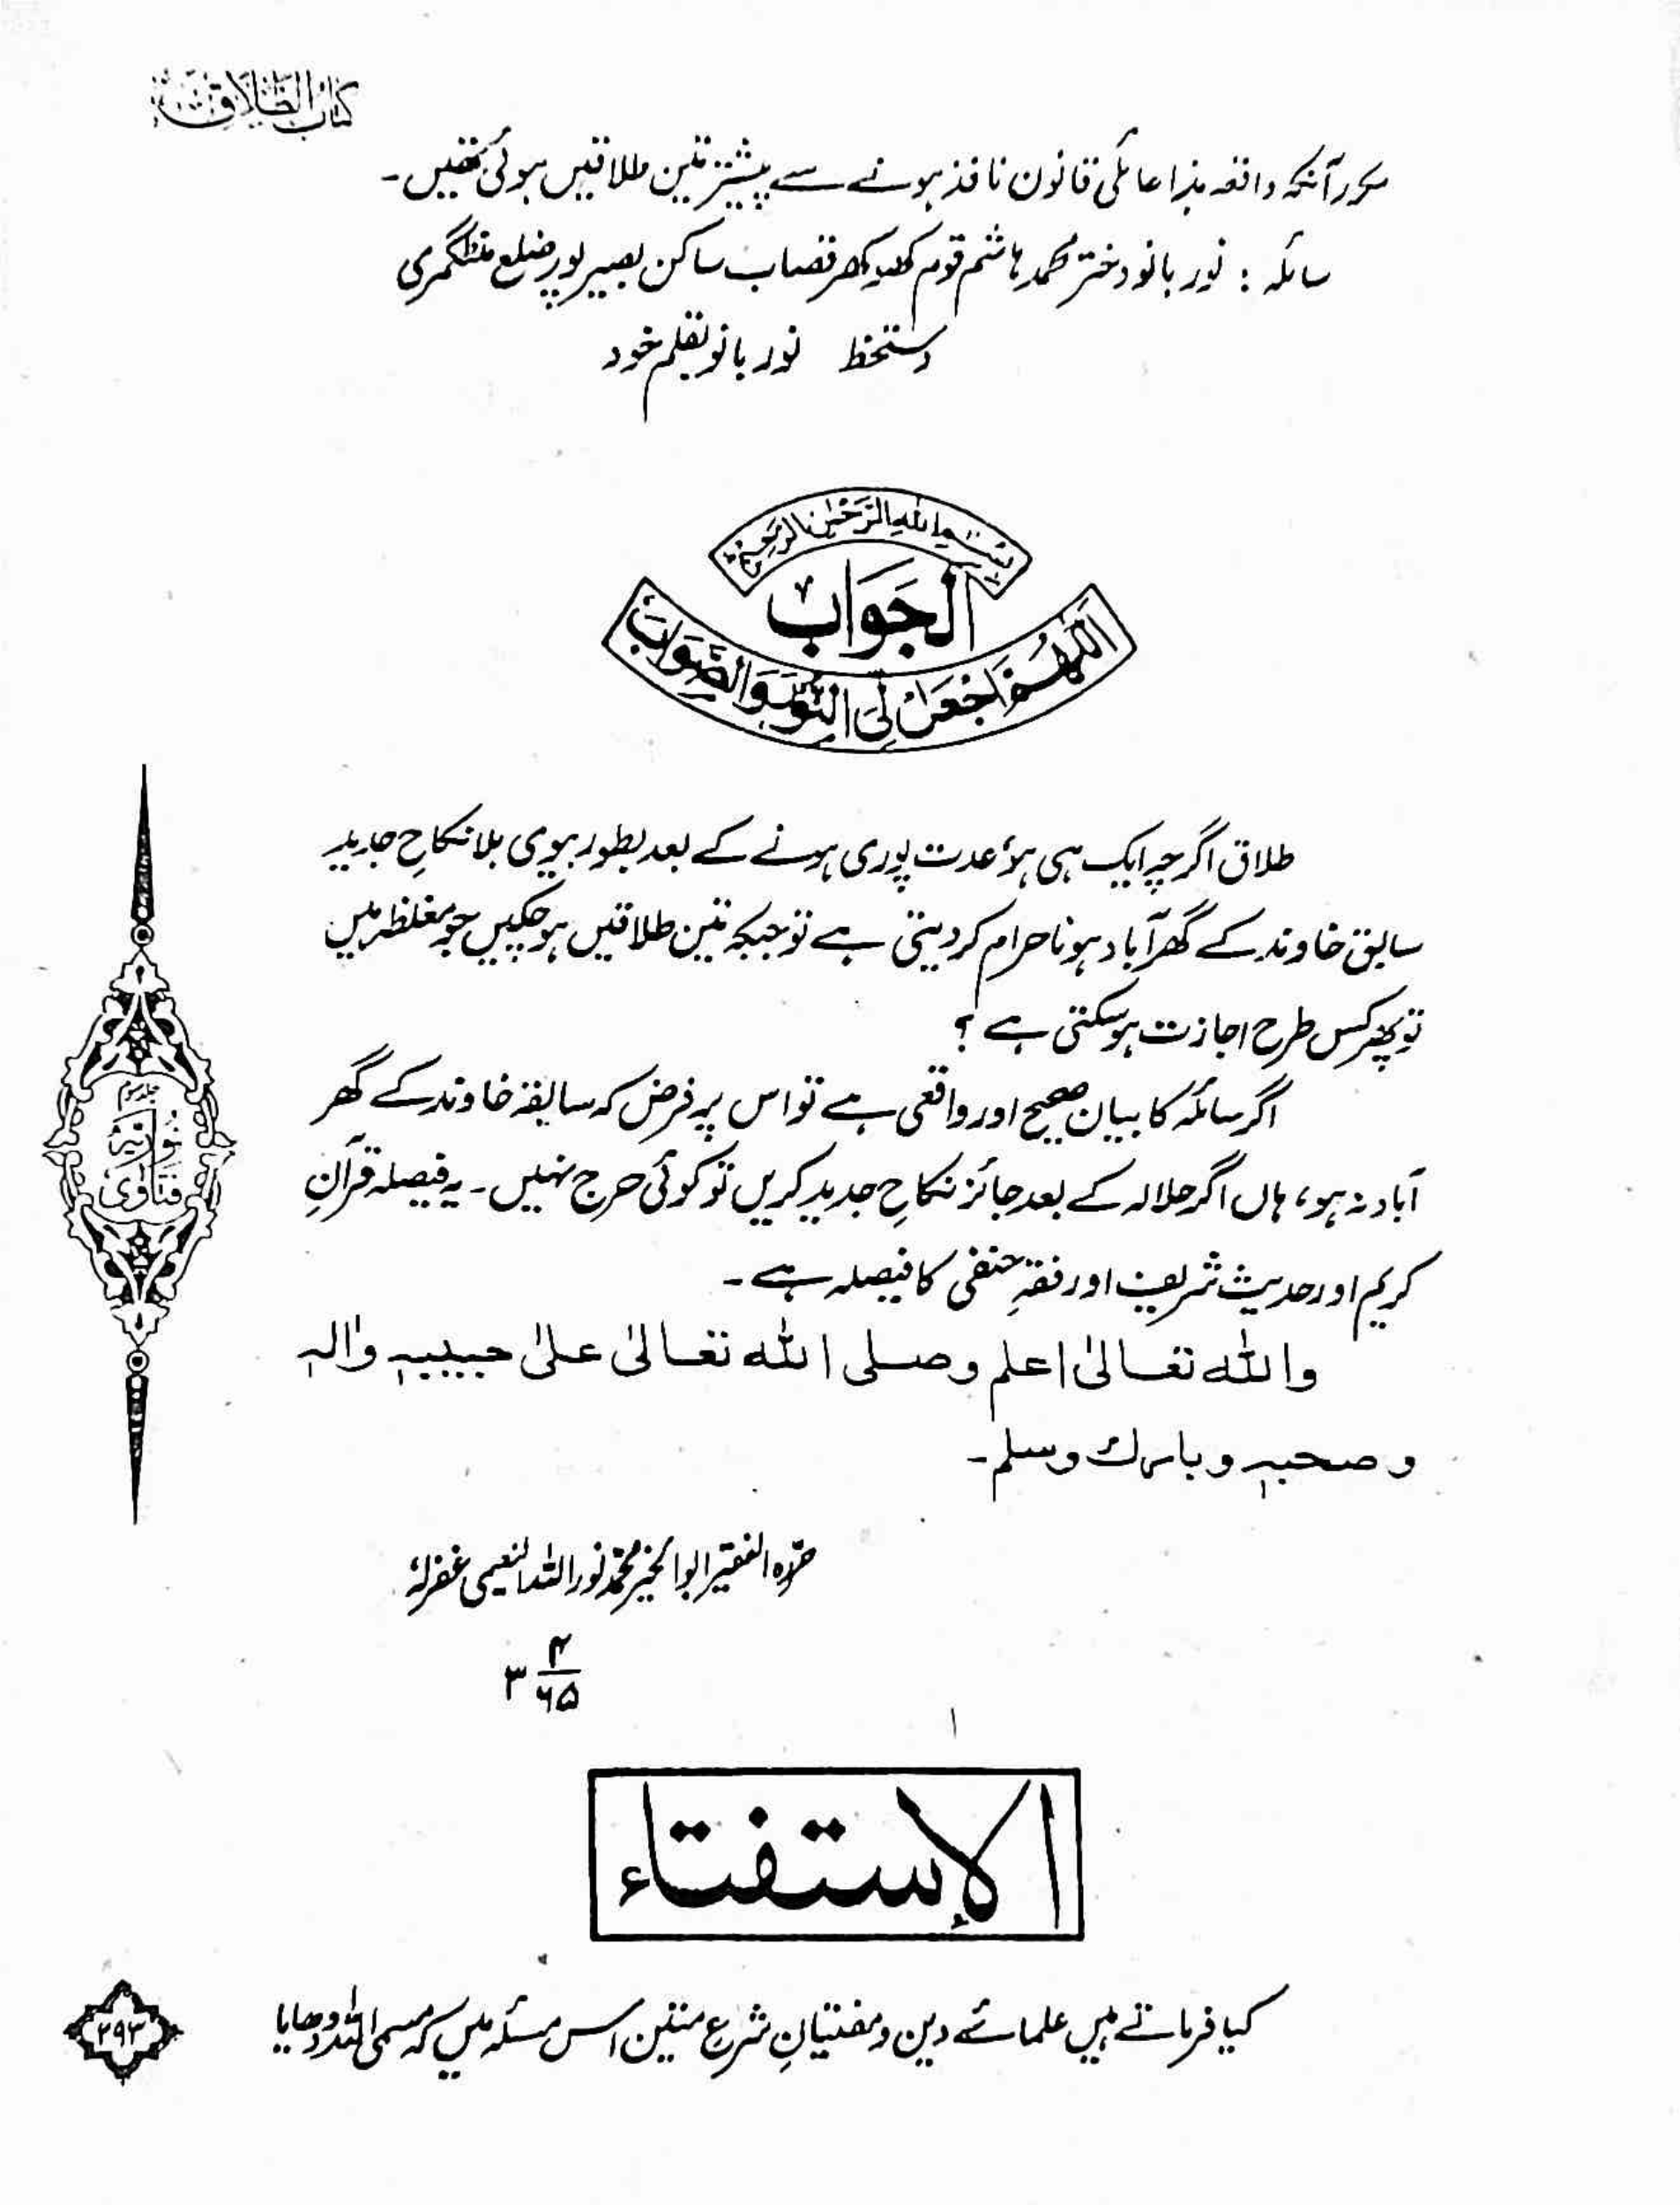 کتاب الطلاق
مکرر آنکہ واقعہ ہذا عائلی قانون نافذ ہونے سے پیشتر تین طلاقیں ہوئی تھیں۔
سائلہ : نور بانو دختر محمد ہاشم قوم کھوکھر قصاب ساکن بصیر پور ضلع منٹگمری
دستخط نور بانو بقلم خود
بِسْمِ اللهِ الرَّحْمٰنِ الرَّحِيْمِ
اَلجَوَابُ
اَللّٰهُمَّ اجْعَلْ لِیَ النُّوْرَ وَالصَّوَابَ
طلاق اگرچہ ایک ہی ہو، عدت پوری ہونے کے بعد بطور بیوی بلا نکاحِ جدید
سابق خاوند کے گھر آباد ہونا حرام کر دیتی ہے تو جبکہ تین طلاقیں ہو چکیں جو مغلظہ ہیں
تو پھر کس طرح اجازت ہو سکتی ہے ؟
اگر سائلہ کا بیان صحیح اور واقعی ہے تو اس پر فرض کہ سابقہ خاوند کے گھر
آباد نہ ہو، ہاں اگر حلالہ کے بعد جائز نکاحِ جدید کریں تو کوئی حرج نہیں۔ یہ فیصلہ قرآنِ
کریم اور حدیث شریف اور فقہِ حنفی کا فیصلہ ہے۔
واللّٰه تعالیٰ اعلم وصلی اللّٰه تعالیٰ علیٰ حبیبہٖ واٰلہٖ
وصحبہٖ وبارك وسلم۔
حرّرہ الفقیر ابو الخیر محمد نور اللہ النعیمی غفرلہٗ
۳ ۴/۶۵
جلد سوم
فتاوٰی نوریہ
الإستفتاء
کیا فرماتے ہیں علمائے دین و مفتیانِ شرع متین اس مسئلہ میں کہ مسمی اللہ ودھایا
۲۹۳